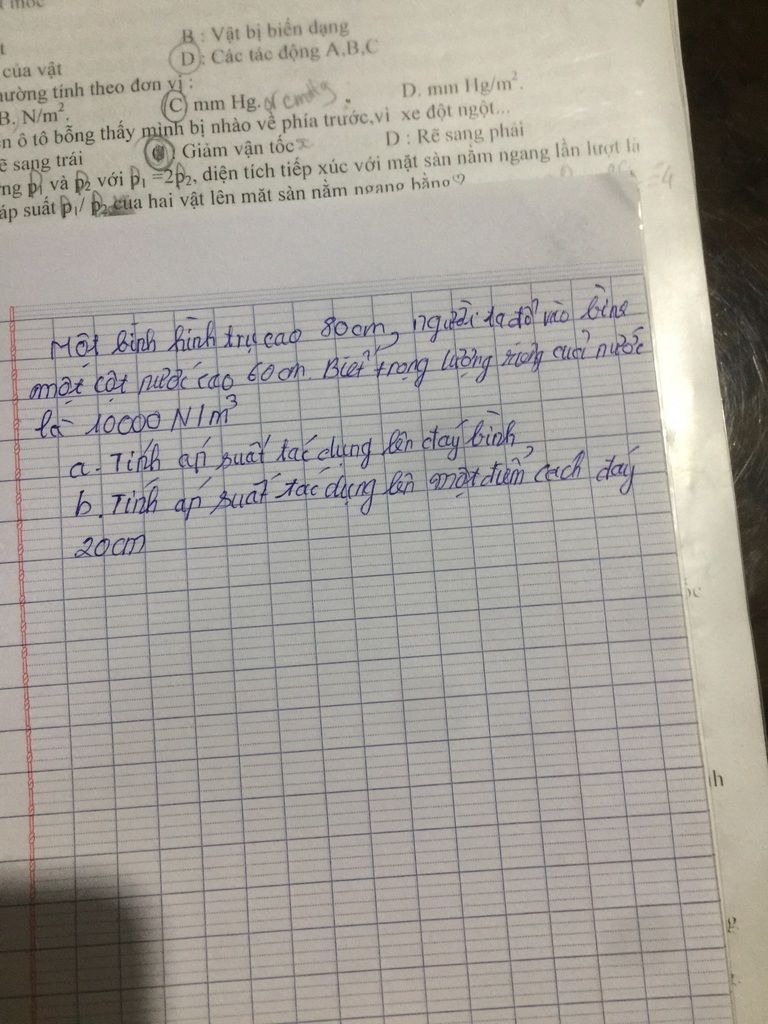 B : Vật bị biến dạng
của vật
D : Các tác động A,B,C
hường tính theo đơn vị :
B. N/m².
C mm Hg.
D. mm Hg/m².
n ô tô bỗng thấy mình bị nhào về phía trước,vì xe đột ngột...
ẽ sang trái
Giảm vận tốc
D : Rẽ sang phải
ng p1 và p2 với p1 =2p2, diện tích tiếp xúc với mặt sàn nằm ngang lần lượt là
=4
áp suất p1/ p2 của hai vật lên mặt sàn nằm ngang bằng?
Một bình hình trụ cao 80cm, người ta đổ vào bình
một cột nước cao 60cm. Biết trọng lượng riêng cuả nước
là 10000 N/m³
a. Tính áp suất tác dụng lên đáy bình
b. Tính áp suất tác dụng lên một điểm cách đáy
20cm
ốc
h
g